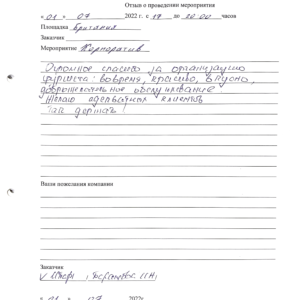 Отзыв о проведении мероприятия
« 01 » 07 2022 г. с 17 до 20:00 часов
Площадка Британия
Заказчик
Мероприятие Корпоратив
Огромное спасибо за организацию
фуршета: вовремя, красиво, вкусно,
доброжелательное обслуживание
Желаю адекватных клиентов
Так держать!
Ваши пожелания компании
Заказчик
« 01 » 07 2022г.